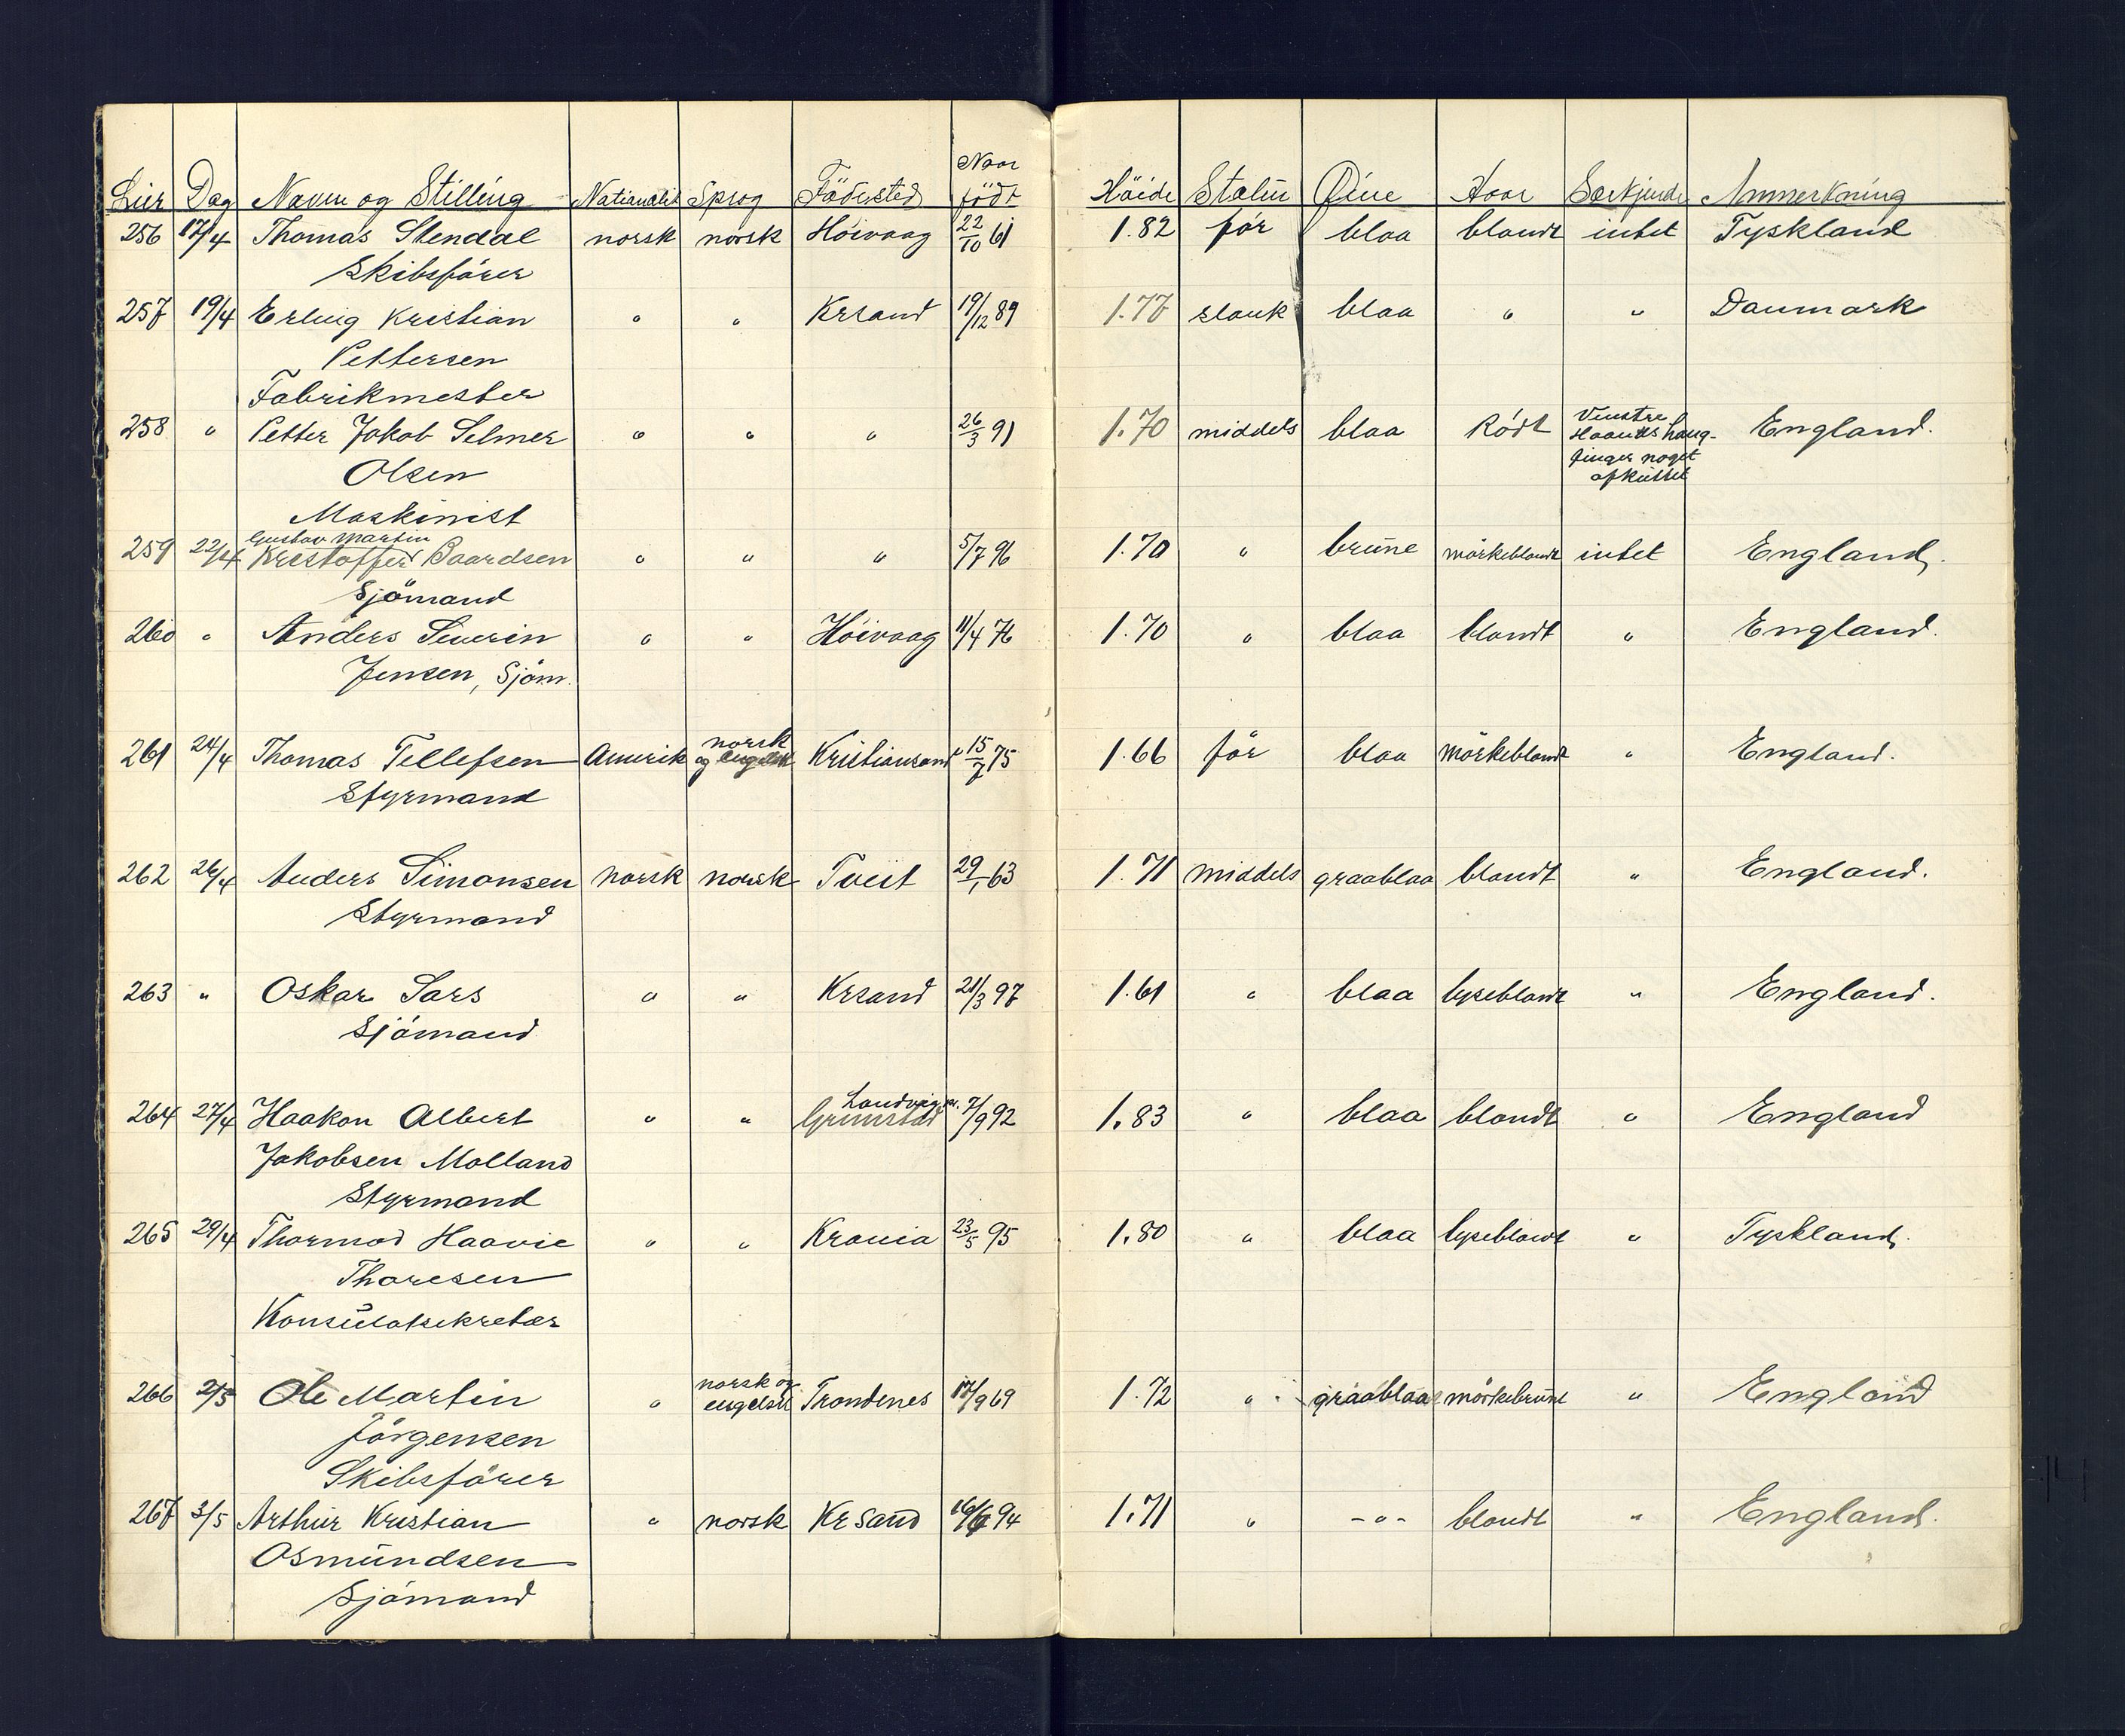 Naar
Dag Navn og Stilling Nationalit Sprog Födested födt Höide Statur Øine Haar Særkjende Anmerkning
256 17/4 Thomas Stendal norsk norsk Höivaag 22/10 61 1.82 för blaa blondt intet Tyskland
Skibsförer
257 19/4 Erling Kristian " " Krsand 19/12 89 1.77 slank blaa " " Danmark
Pettersen
Fabrikmester
258 " Petter Jakob Selmer " " " 26/3 91 1.70 middels blaa Rödt Venstre Haands lang- finger noget afkuttet England.
Olsen
Maskinist
Gustav Martin
259 22/4 Kristoffer Baardsen " " " 5/7 96 1.70 " brune mörkeblondt intet England.
Sjömand
260 " Anders Severin " " Höivaag 11/4 76 1.70 " blaa blondt " England.
Jensen, Sjöm.
261 24/4 Thomas Tellefsen Amerik norsk og engelsk Kristiansand 15/7 75 1.66 för blaa mörkeblondt " England.
Styrmand
262 26/4 Anders Simonsen norsk norsk Tveit 29/1 63 1.71 middels graablaa blondt " England.
Styrmand
263 " Oskar Sars " " Krsand 21/3 97 1.61 " blaa lyseblondt " England.
Sjömand
264 27/4 Haakon Albert " " Landvig Grimstad 7/9 92 1.83 " blaa blondt " England
Jakobsen Molland
Styrmand
265 29/4 Thormod Haavie " " Krania 23/5 95 1.80 " blaa lyseblondt " Tyskland.
Thoresen
Konsulatsekretær
266 2/5 Ole Martin " norsk og engelsk Trondenes 17/9 69 1.72 " graablaa mörkebrunt " England
Jörgensen
Skibsförer
267 3/5 Arthur Kristian " norsk Kr sand 16/6 94 1.71 " -"- blondt " England.
Osmundsen
Sjömand